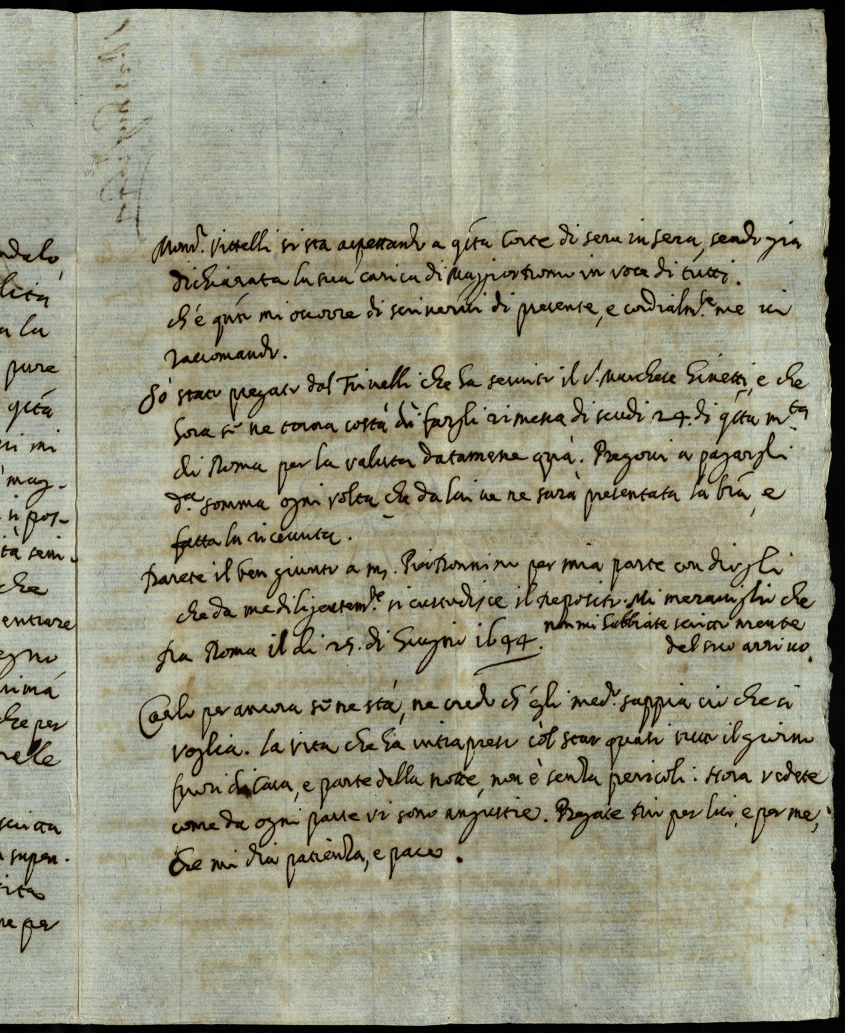 ndalo
lità
a la
pure
q̃ta
ri mi
mag-
si pos-
tà seui-
che
entrare
egno
rima
che per
nelle
scritta
supen-
rita
ne per
Mons.r Vittelli si sta aspettando a q̃ta Corte di sera in sera, sendo gia
dichiarata la sua carica di Maggiordomo in voce di tutti.
ch'è q̃to mi occorre di scriuerui di presente, e cordialm.te me ui
raccomando.
Sò stato pregato dal Triuelli che ha seruito il S. Marchese Ginetti, e che
hora se ne torna costà di fargli rimessa di scudi 24. di q̃ta m.ta
di Roma per la valuta datamene quà. Pregoui a pagargli
d.a somma ogni volta che da lui ue ne sarà presentata la p̃n̄te, e
fatta la riceuuta.
Darete il ben giunto a m. Pier per mia parte con dirgli
che da me diligentem.te si custodisce il deposito. Mi marauiglio che
non mi habbiate scritto niente
del suo arriuo.
Da Roma il di 25. di Giugno 1644.
Carlo per ancora se ne stà, ne credo ch'egli med.o sappia ciò che si
voglia. La vita che ha intrapreso col star quasi tutto il giorno
fuori di Casa, e parte della notte, non è senza pericoli: Hora vedete
come da ogni parte vi sono angustie. Pregate Dio per lui, e per me,
che mi dia patienza, e pace.